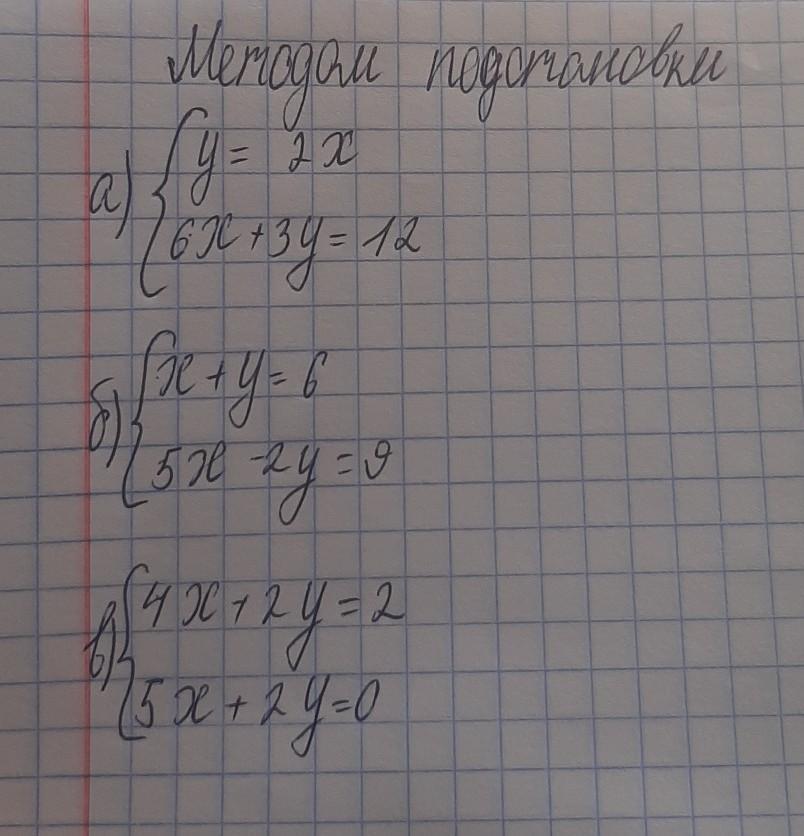 Методом подстановки
а) { y = 2x
6x + 3y = 12
б) { x + y = 6
5x - 2y = 9
в) { 4x + 2y = 2
5x + 2y = 0